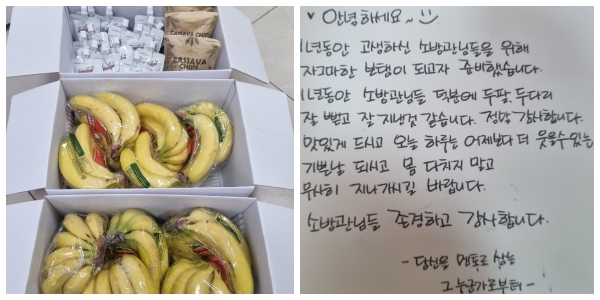 CASSAVA CHIPS
CASSAVA
CHIPS
♥ 안녕하세요~
1년동안 고생하신 소방관님들을 위해
자그마한 보탬이 되고자 준비했습니다.
1년동안 소방관님들 덕분에 두팔, 두다리
잘 뻗고 잘 지낸것 같습니다. 정말 감사합니다.
맛있게 드시고 오늘 하루는 어제보다 더 웃을수있는
기쁜날 되시고 몸 다치지 말고
무사히 지나가시길 바랍니다.
소방관님들 존경하고 감사합니다.
- 당신을 멘토로 삼는
그 누군가로부터 -